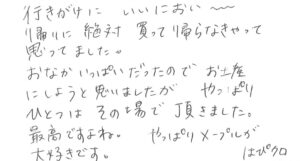 行きがけに いいにおい〜〜
帰りに 絶対 買って帰らなきゃって
思ってました。
おなかいっぱいだったので お土産
にしようと思いましたが やっぱり
ひとつは その場で 頂きました。
最高ですよね。 やっぱりメープルが
大好きです。 はぴクロ